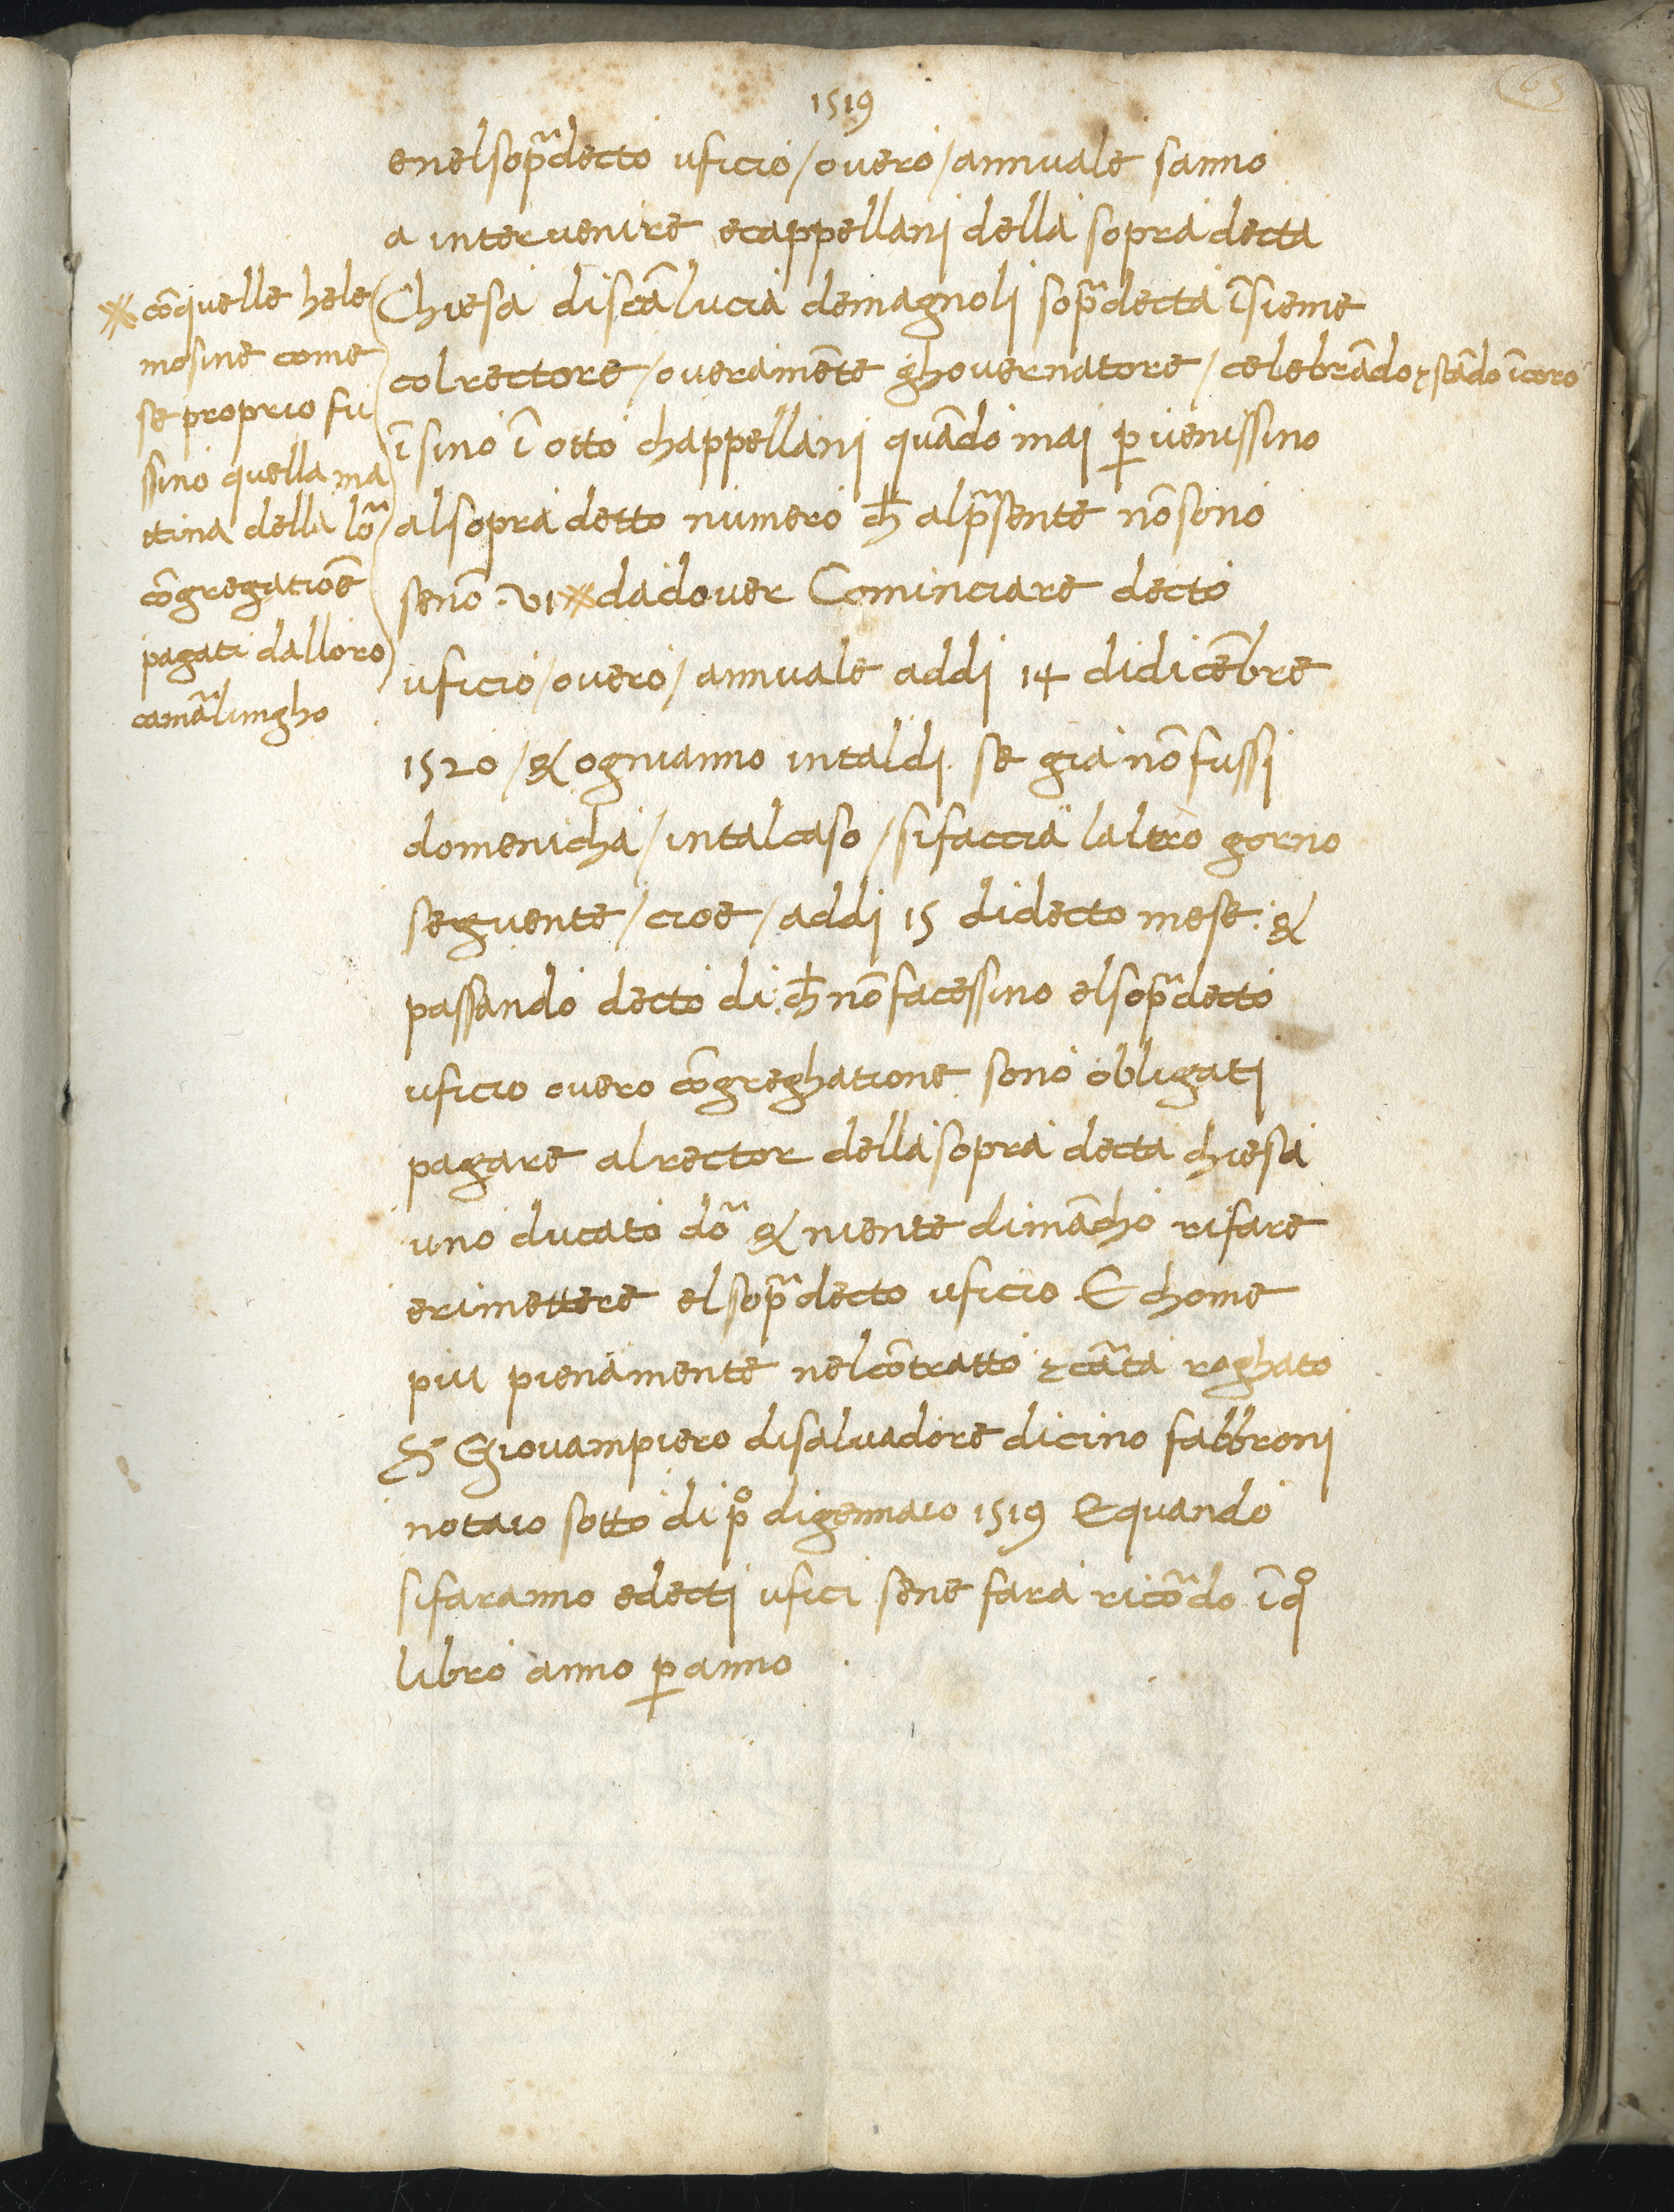 1519
65
enelsop̃adecto uficio / overo / annuale sanno
a intervenire ecappellanj della sopra decta
Chiesa discãlucia demagnolj sop̃adecta ĩsieme
colrectore / overamẽte ghovernatore / celebrãdo ⁊ stãdo ĩcoro
ĩsino ĩ otto chappellanj quãdo maj ꝑvenissino
alsopra detto numero ch̄ alp̃sente nõsono
senõ · vi ※ dadover Cominciare decto
uficio / overo / annuale addj 14 didicẽbre
1520 / & ognianno intaldj se gia nõfussj
domenicha / intalcaso / sifaccia laltro gorno
seguente / cioe / addj 15 didecto mese : &
passando decto di : ch̄ nõfacessino elsop̃adecto
uficio overo cõgreghatione sono obligatj
pagare alrector della sopra decta chiesa
uno ducato dõ & niente dimãcho rifare
erimettere elsop̃adecto uficio E chome
piu pienamente nelcõtratto ⁊ cãta roghato
S Giovampiero disalvadore dicino fabbronj
notaio sotto di pº digennaio 1519 E quando
sifaranno edectj ufici sene fara ricõdo ĩ qº
libro anno ꝑ anno
※ cõquelle hele
mosine come
se proprio fu
ssino quella ma
ttina della lõ
cõgregatiõe
pagati dalloro
camãlingho